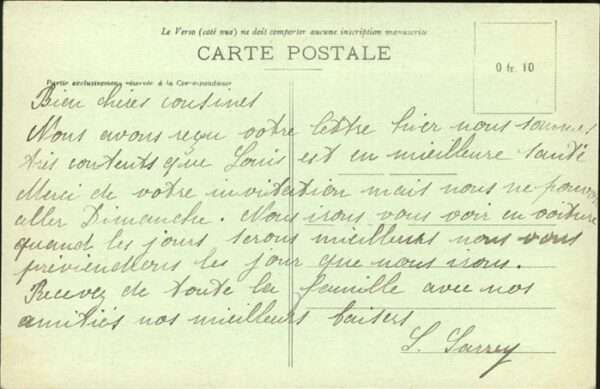 Le Verso (coté vue) ne doit comporter aucune inscription manuscrite
CARTE POSTALE
Partie exclusivement réservée à la Correspondance
0 fr. 10
Bien chères cousines
Nous avons reçu votre lettre hier nous sommes
très contents que Louis est en meilleure santé
Merci de votre invitation mais nous ne pouvons
aller Dimanche. Nous irons vous voir en voiture
quand les jours serons meilleurs nous vous
préviendrons les jour que nous irons.
Recevez de toute la famille avec nos
amitiés nos meilleurs baisers